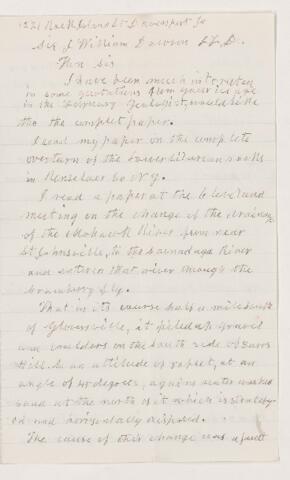 Davenport Io
Sir J William Dawson L L. D.
Thou sir
I have been much interested
in some quotations from your
in the February Geologist, would like
the complet paper.
I send my paper on the complete
overturn of the lower silurean rocks
in Renselaer Co N.Y.
I read a paper at the Cleveland
meeting on the change of the drainage
of the Mohawk River from near
St Johnsville, to the Sacandaga River
and that river through the
That in its course half a mile south
of Gloversville, it pileded up gravel
and boulders on the south side of
Hill. In an attitude of repose, at an
angle of 40 degrees, against water washed
sand at the north of it which is
and horisontally disposed.
The cause of this change was a fault